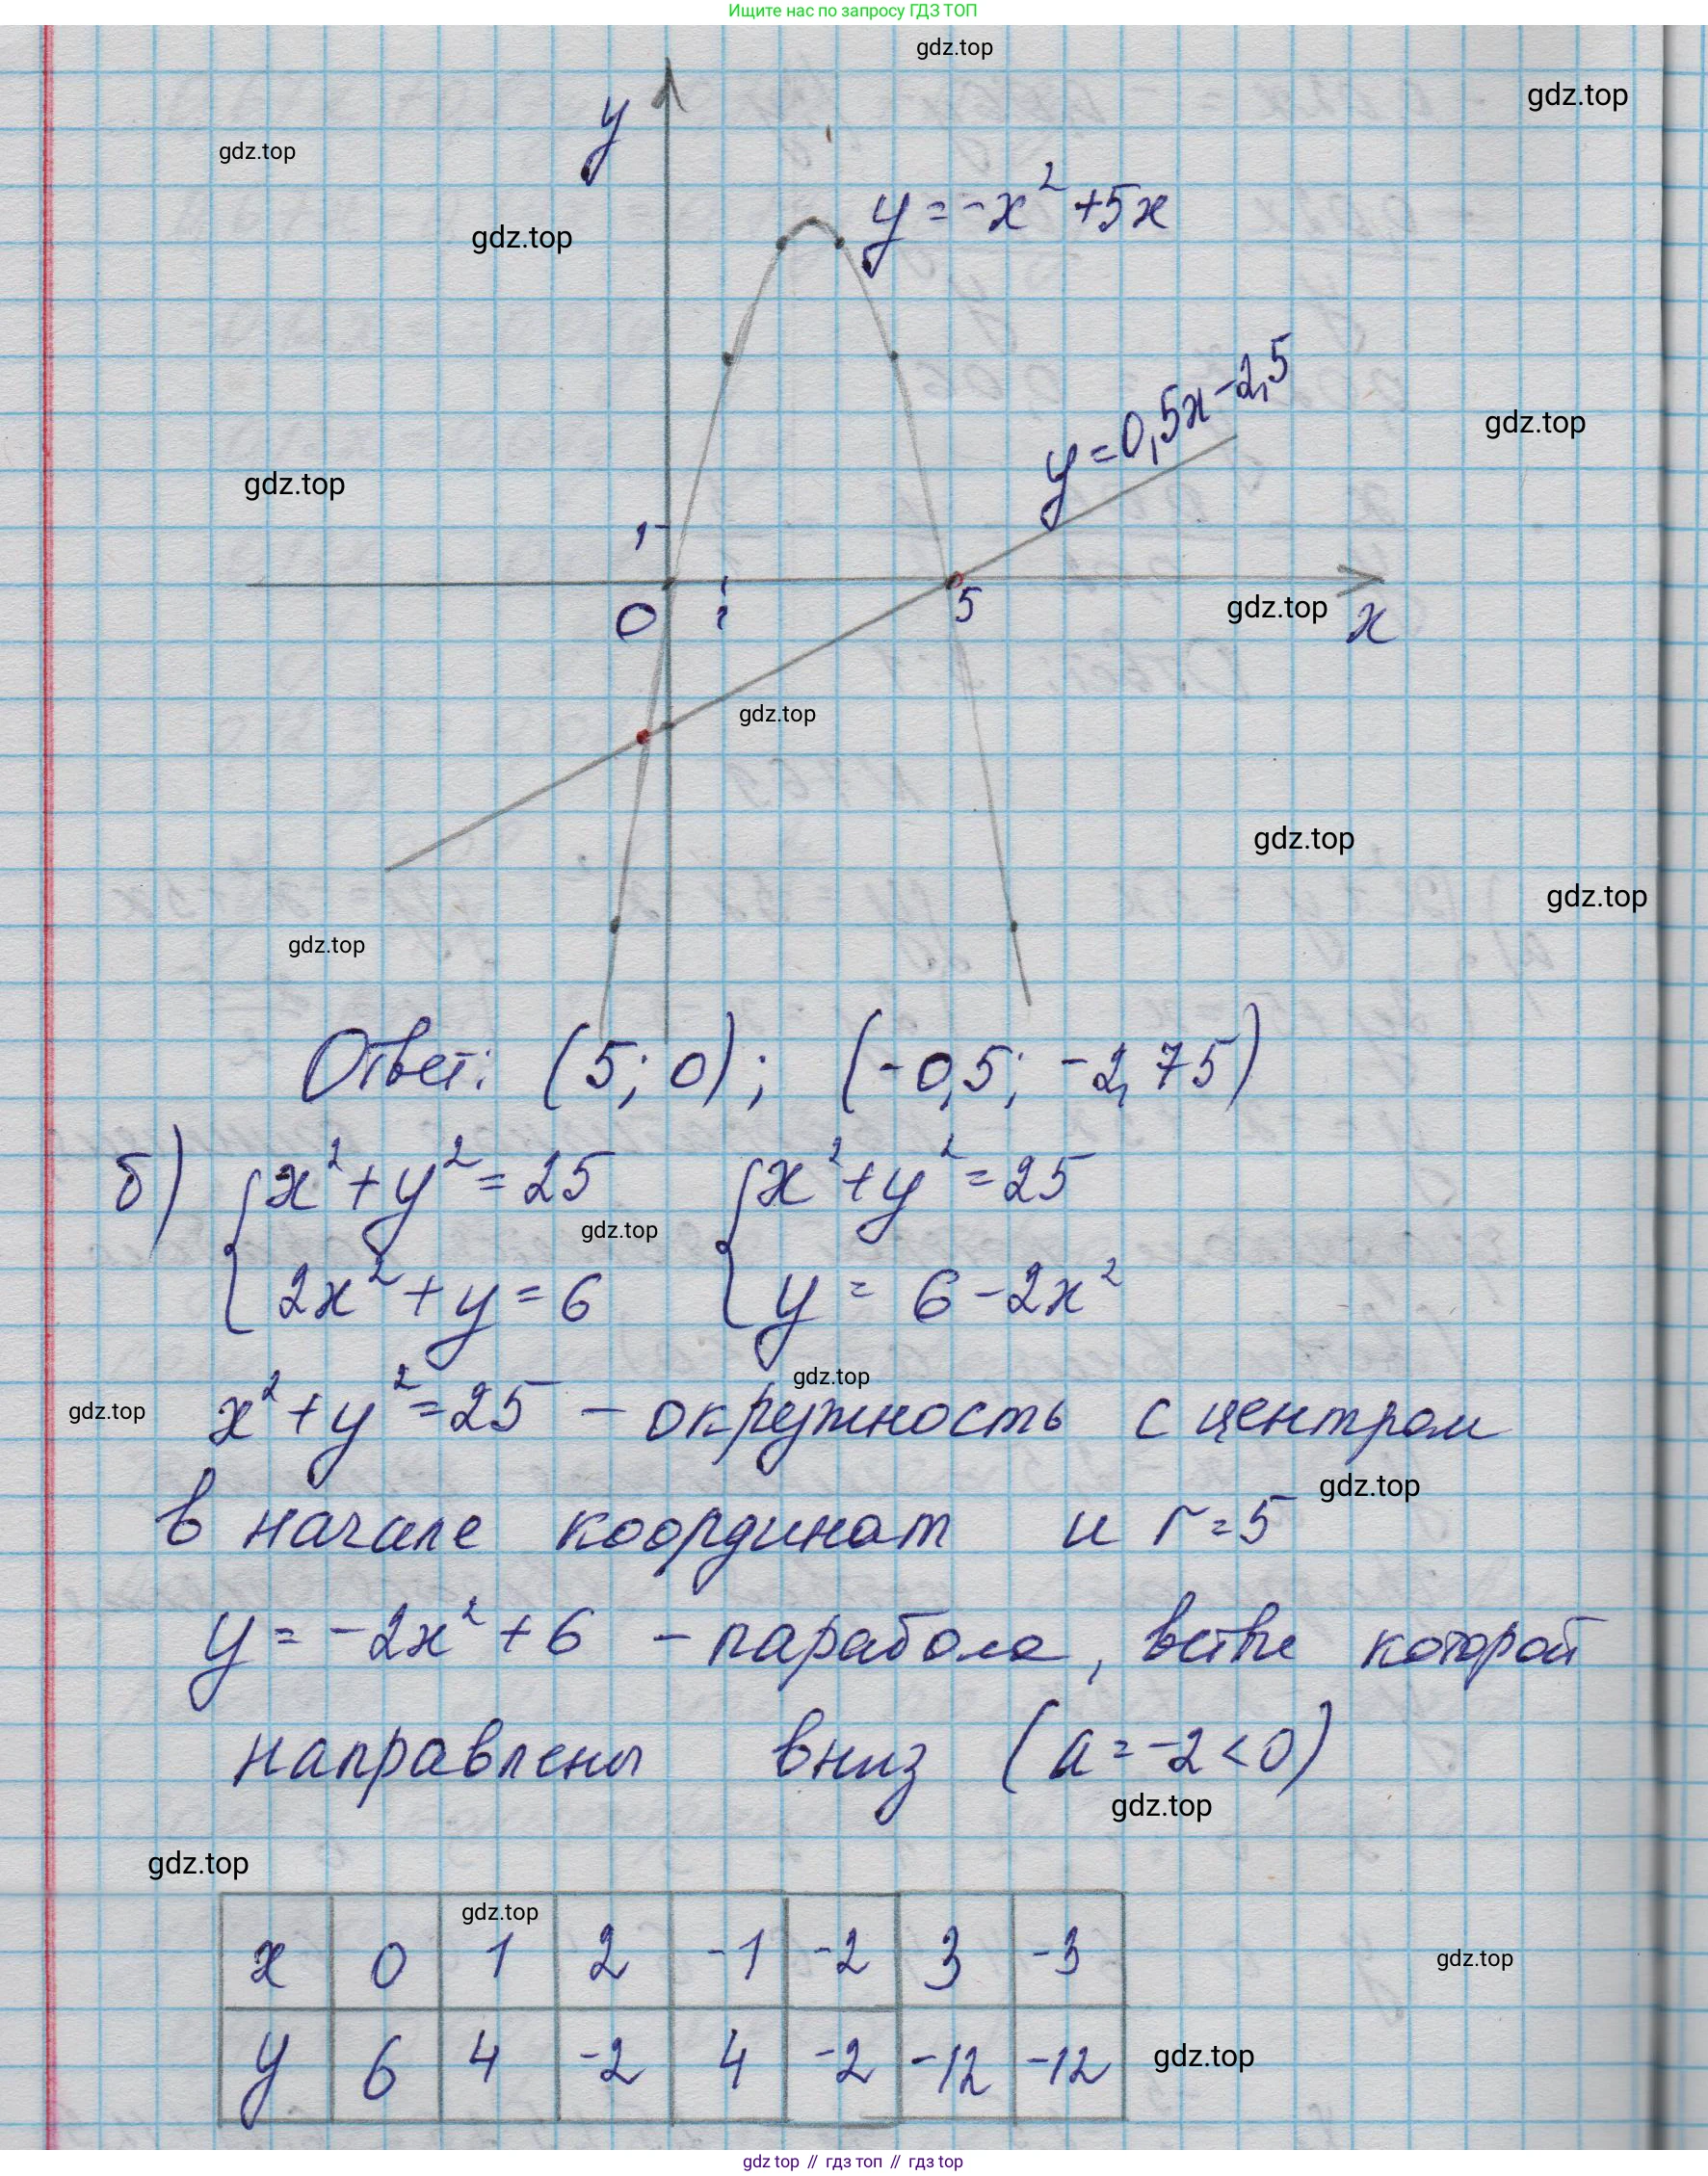 Ищите нас по запросу ГДЗ ТОП
gdz.top
gdz.top
gdz.top
y
gdz.top
y = -x² + 5x
y = 0,5x - 2,5
gdz.top
gdz.top
1
0
1
5
gdz.top
x
gdz.top
gdz.top
gdz.top
gdz.top
Ответ: (5; 0); (-0,5; -2,75)
б) { x² + y² = 25 { x² + y² = 25
gdz.top
2x² + y = 6 y = 6 - 2x²
gdz.top
gdz.top
x² + y² = 25 - окружность с центром
gdz.top
в начале координат и r = 5
y = -2x² + 6 - парабола, ветви которой
направлены вниз (a = -2 < 0)
gdz.top
gdz.top
gdz.top
x 0 1 2 -1 -2 3 -3
gdz.top
y 6 4 -2 4 -2 -12 -12
gdz.top
gdz top // гдз топ // гдз top